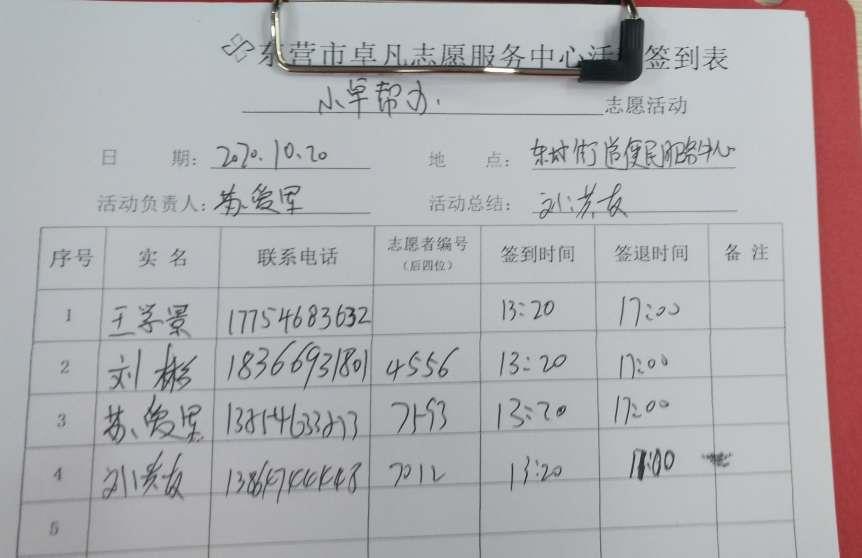 东营市卓凡志愿服务中心活动签到表
小卓帮办. 志愿活动
日 期: 2020.10.20 地 点: 东城街道便民服务中心
活动负责人: 苏爱军 活动总结: 刘洪友
序号 实 名 联系电话 志愿者编号 签到时间 签退时间 备 注
(后四位)
1 王学景 17754683632 13:20 17:00
2 刘彬 18366931801 4556 13:20 17:00
3 苏爱军 13:20 17:00
4 刘洪友 7012 13:20
5